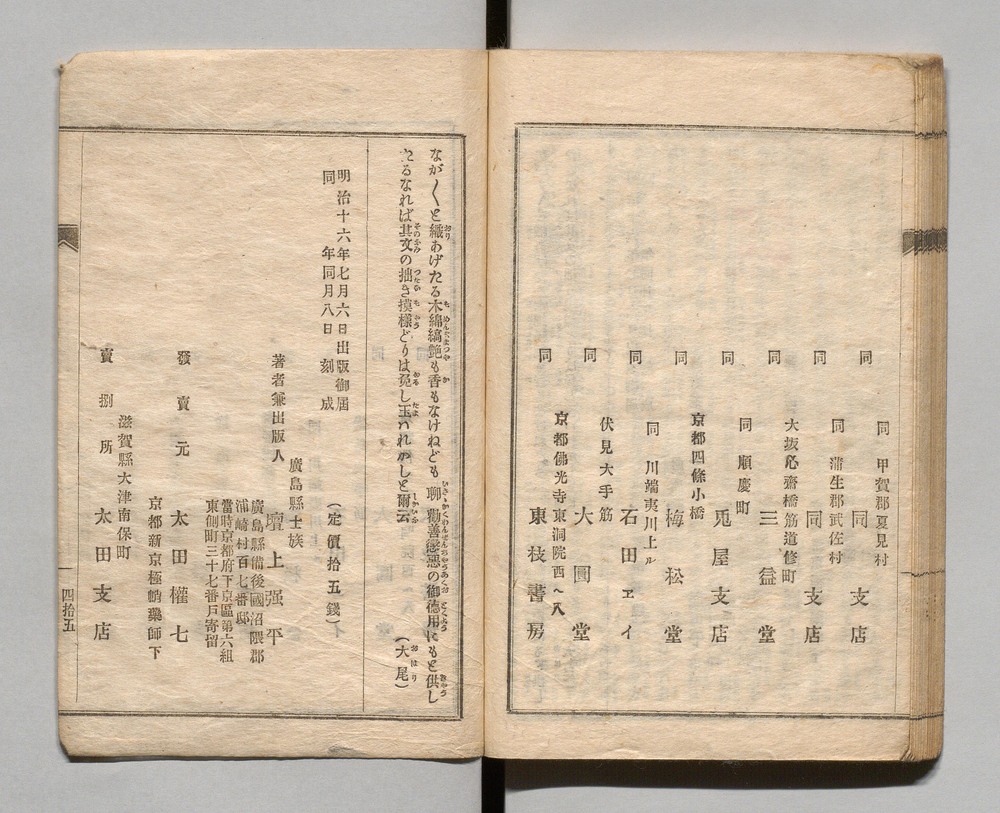 甲賀郡夏見村
同 同支店
同 蒲生郡武佐村
同 同支店
大坂心齋橋筋道修町
同 三益堂
同 順慶町
同 兎屋支店
京都四條小橋
同 梅松堂
同 川端夷川上ル
同 石田ヱイ
伏見大手筋
同 大圓堂
京都佛光寺東洞院西ヘ入
同 東枝書房
なが〱と織あげたる木綿縞艶も香もなけねども聊勸善懲悪の御徳用にもと供し
たるなれば其文の拙き摸樣どりは免し玉はれかしと爾云 (大尾)
明治十六年七月六日出版御届
同 年同月八日 刻成
(定價拾五錢)
廣島縣士族
著者兼出版人 壇上强平
廣島縣備後國沼隈郡
浦崎村百七番邸
當時京都府下京區第六組
東側町三十七番戸寄留
發賣元 太田權七
京都新京極蛸藥師下
滋賀縣大津南保町
賣捌所 太田支店
四拾五